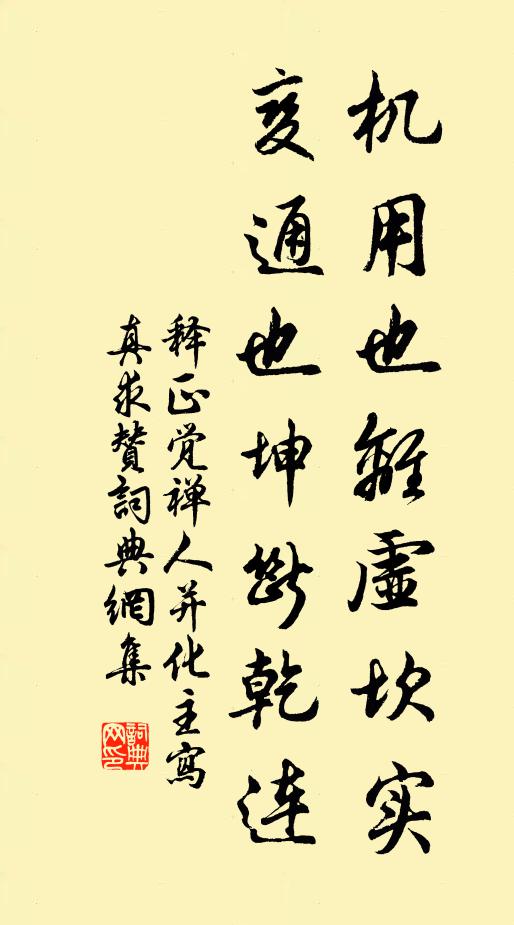 机用也離虚坎实
变通也坤断乾连
释正觉禅人并化主寫
真求赞詞典網集
詞典网印